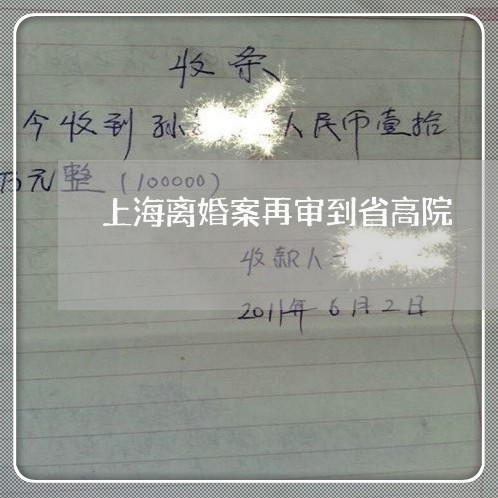 收条
今收到孙 人民币壹拾
万元整(100000)
上海离婚案再审到省高院
收款人
2011年6月2日